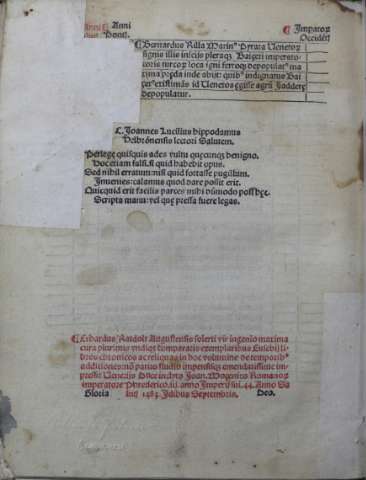 Anni
Imperatorꝝ
Pont.
Occidẽt
Bernardus Rilla Marinꝰ Pyrata Uenetoꝝ
signis illis iniectis pleraqꝫ Baizeti imperato
toris turcoꝝ loca igni ferroqꝫ depopulat ma
xima præda inde abijt: quibꝰ indignatus Bai
zetꝰ existimãs id Uenetos egisse agrũ Jaddertẽ
depopulatur.
C. Joannes Lucilius hippodamus
Helbronensis lectori Salutem.
Perlege quisquis ades vultu quecunqꝫ benigno.
Doceriam falsi si quid habebit opus.
Sed nihil erratum: nisi quid fortasse pugillum.
Inuenies: calamus quod dare possit erit.
Quicquid erit facilis parces mihi dũmodo possꝫ hęc
Scripta manu: vel quę pressa fuere legas.
Erhardus Ratdolt Augustensis solerti vir ingenio maxima
cura plurimis vndiqꝫ comparatis exemplaribus Eusebij li
bros chronicos ac reliquas in hoc volumine de temporibꝰ
additiones: nõ paruo studio impensisqꝫ emendatissime im
pressit Uenetijs Duce inclyto Joan. Mocenico Romanoꝝ
imperatore Phrederico .iii. anno Imperij sui .44. Anno Sa
Gloria lutis 1483. Idibus Septembris. Deo.